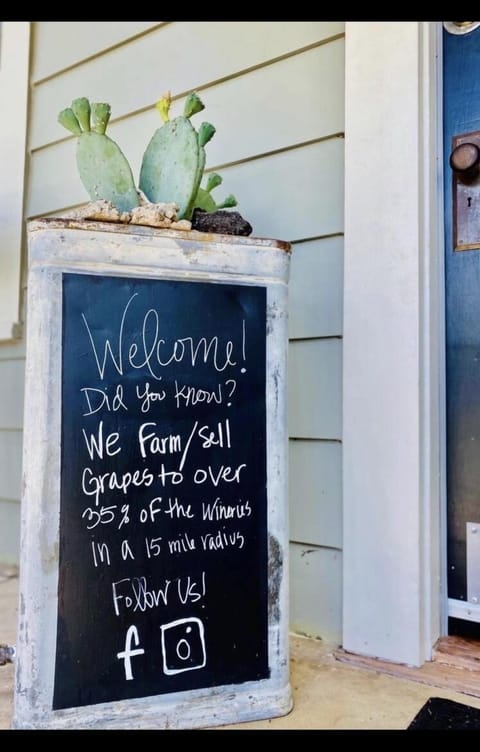 Welcome!
Did You Know?
We Farm/Sell
Grapes to over
35% of the Wineries
in a 15 mile radius
Follow Us!
f